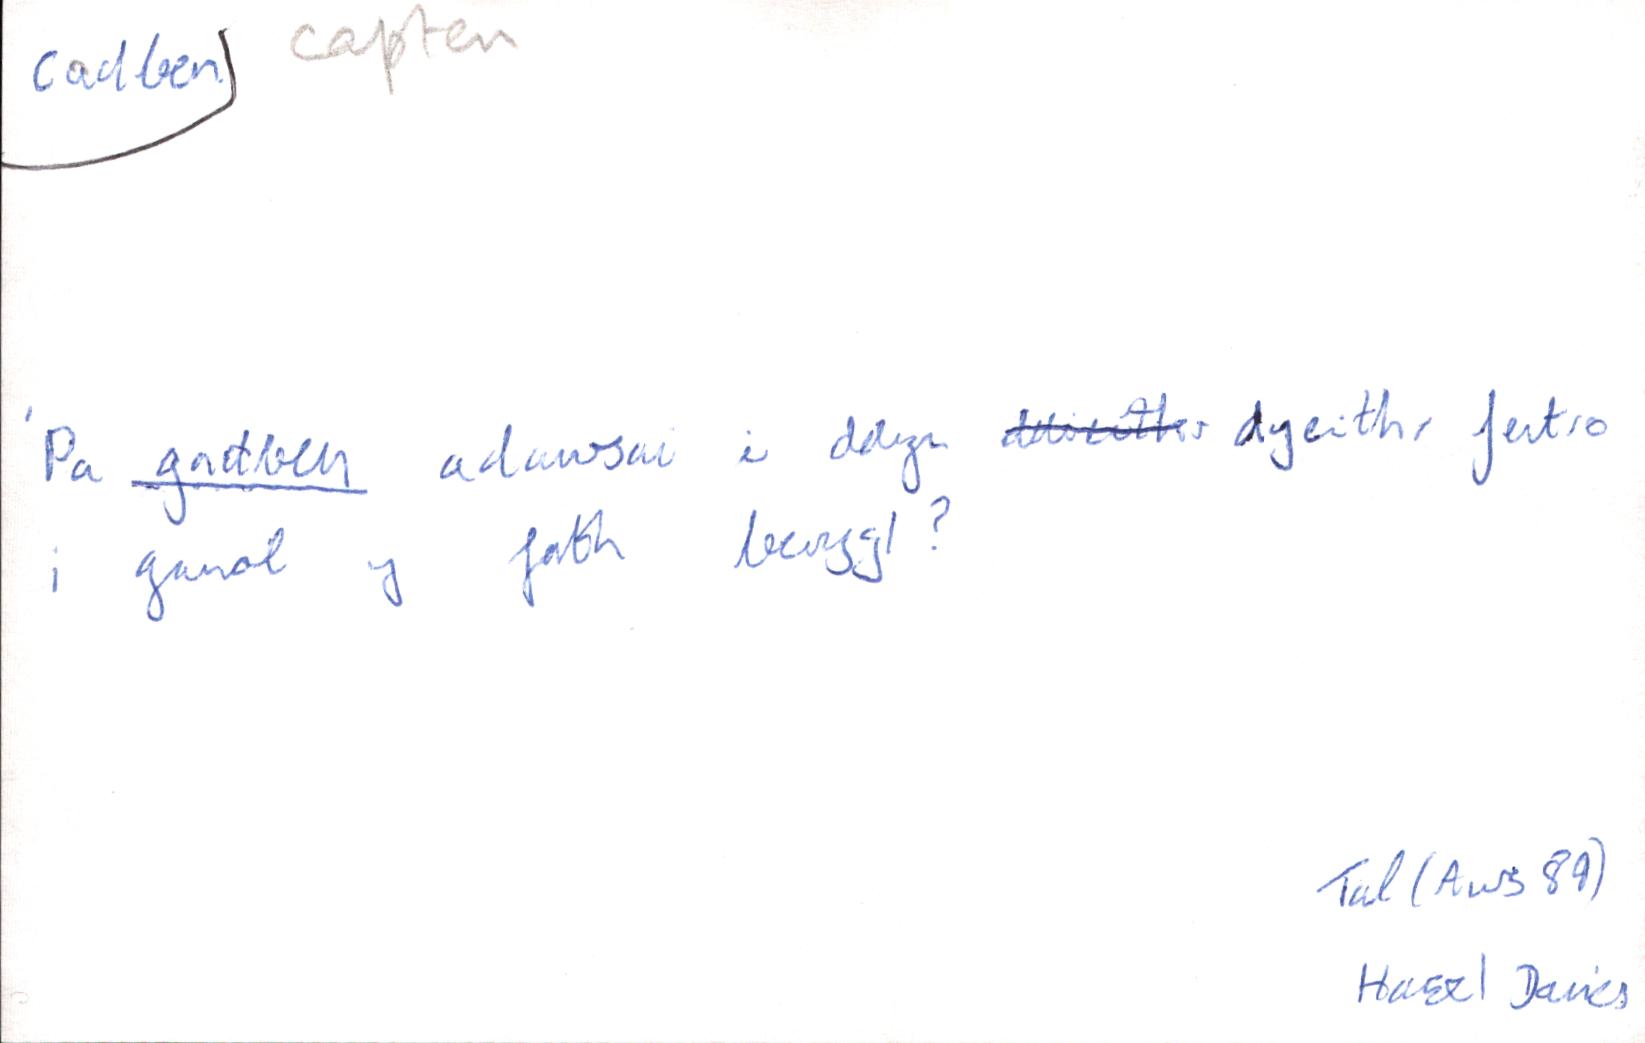 cadben) capten
'Pa gadben adawsai i ddyn dyeithr fentro
i ganol y fath berygl?
Tal (Aws 89)
Hazel Davies